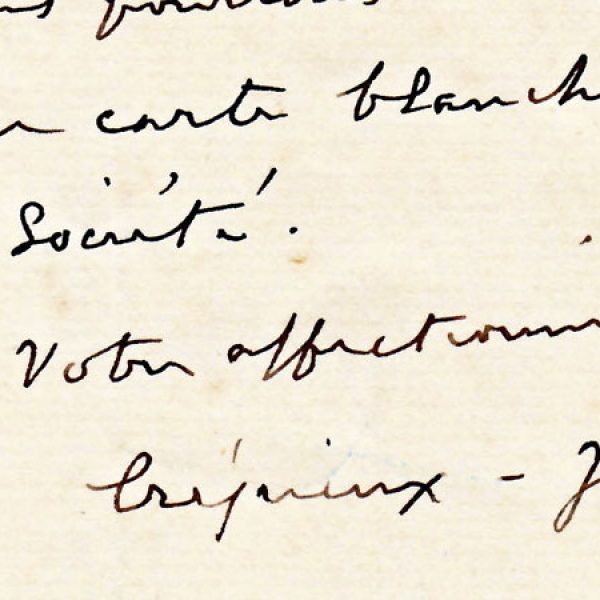 carte blanch
Société.
Votre affectionn
Crépieux - J